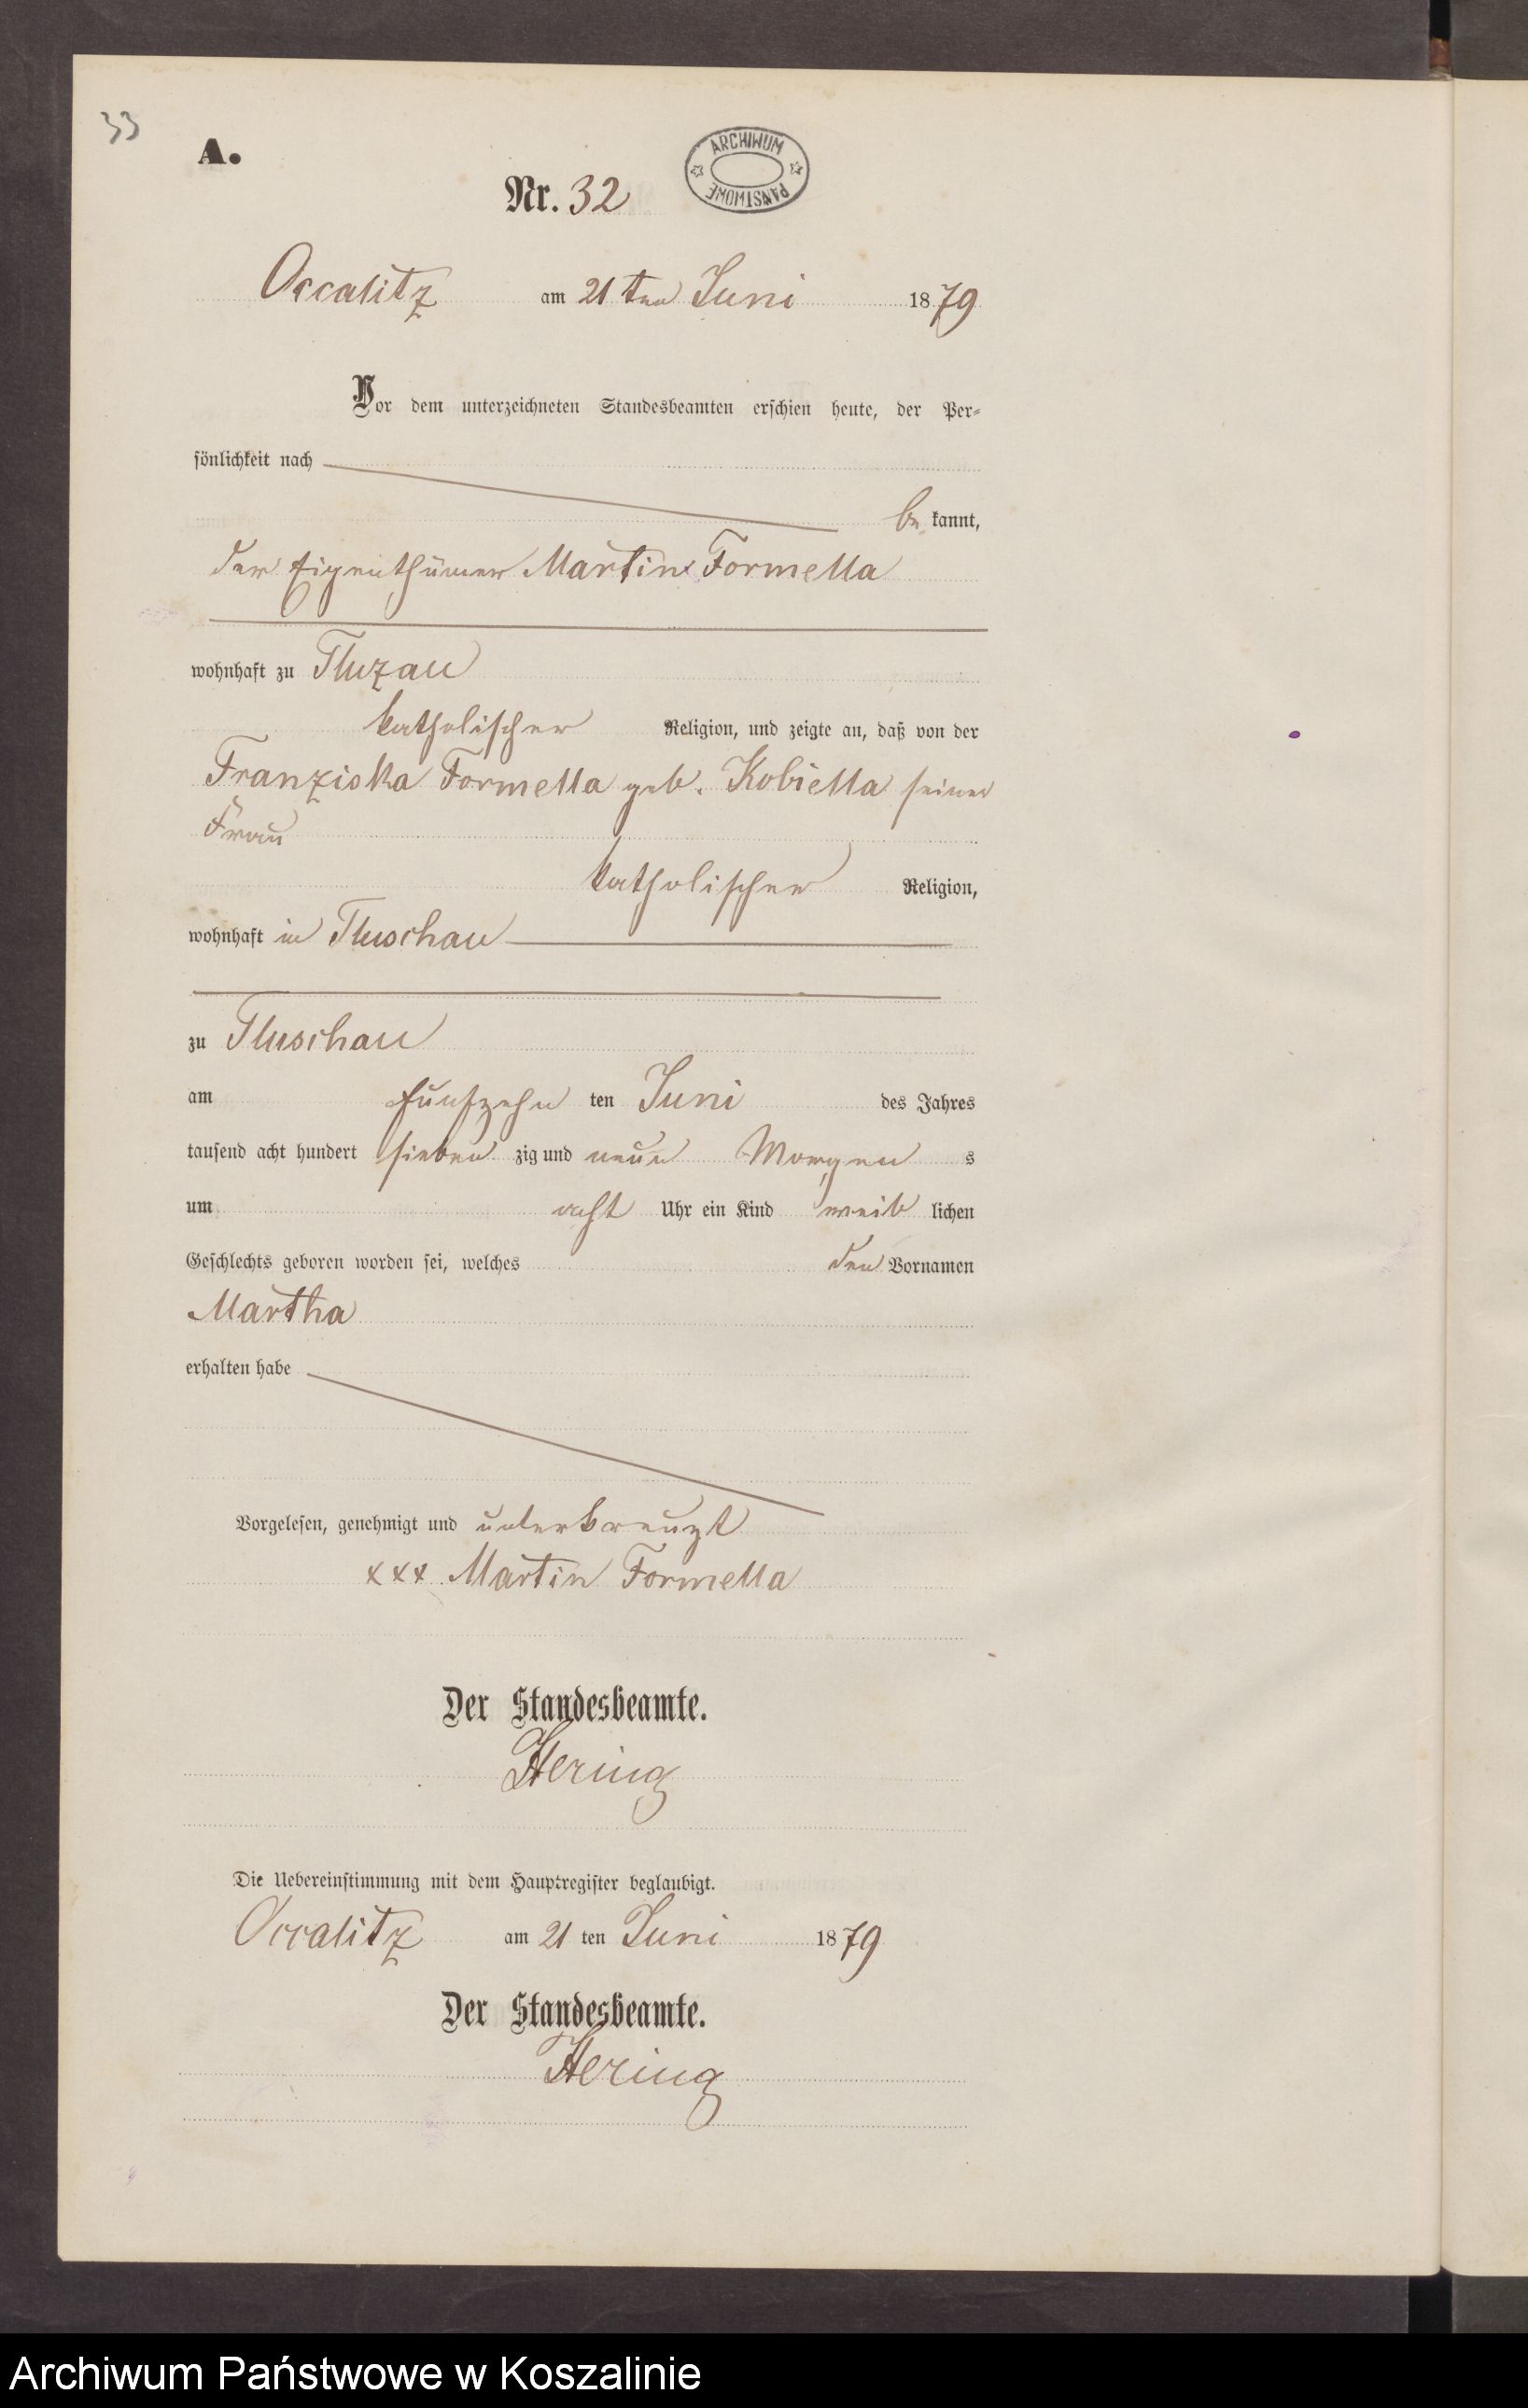 33
A.
ARCHIWUM PAŃSTWOWE
Nr. 32
Occalitz am 21ten Juni 1879
Vor dem unterzeichneten Standesbeamten erschien heute, der Per-
sönlichkeit nach
be kannt,
der Eigenthümer Martin Formella
wohnhaft zu Tluzau
katholischer Religion, und zeigte an, daß von der
Franziska Formella geb. Kobiella seiner
Frau
katholischer Religion,
wohnhaft in Tluschau
zu Tluschau
am fünfzehn ten Juni des Jahres
tausend acht hundert sieben zig und neun Morgen s
um acht Uhr ein Kind weib lichen
Geschlechts geboren worden sei, welches den Vornamen
Martha
erhalten habe
Vorgelesen, genehmigt und unterkreuzt
xxx Martin Formella
Der Standesbeamte.
Hering
Die Uebereinstimmung mit dem Hauptregister beglaubigt.
Occalitz am 21 ten Juni 1879
Der Standesbeamte.
Hering
Archiwum Państwowe w Koszalinie